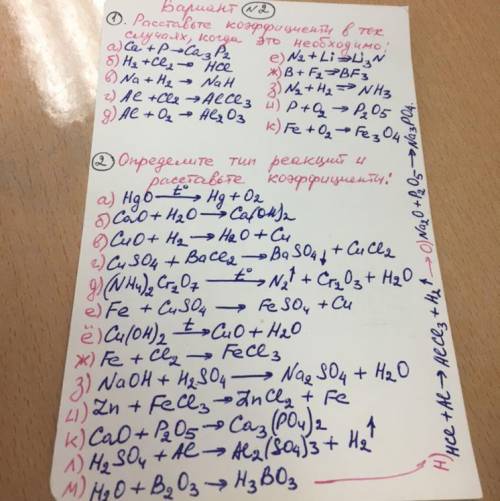 Вариант №2
① Расставьте коэффициенты в тех
случаях, когда это необходимо:
а) Ca + P → Ca3P2
б) H2 + Cl2 → HCl
в) Na + H2 → NaH
г) Al + Cl2 → AlCl3
д) Al + O2 → Al2O3
е) N2 + Li → Li3N
ж) B + F2 → BF3
з) N2 + H2 → NH3
и) P + O2 → P2O5
к) Fe + O2 → Fe3O4
② Определите тип реакций и
расставьте коэффициенты:
а) HgO —t°→ Hg + O2
б) CaO + H2O → Ca(OH)2
в) CuO + H2 → H2O + Cu
г) CuSO4 + BaCl2 → BaSO4↓ + CuCl2
д) (NH4)2Cr2O7 —t°→ N2↑ + Cr2O3 + H2O
е) Fe + CuSO4 → FeSO4 + Cu
ё) Cu(OH)2 —t→ CuO + H2O
ж) Fe + Cl2 → FeCl3
з) NaOH + H2SO4 → Na2SO4 + H2O
и) Zn + FeCl3 → ZnCl2 + Fe
к) CaO + P2O5 → Ca3(PO4)2
л) H2SO4 + Al → Al2(SO4)3 + H2↑
м) H2O + B2O3 → H3BO3
н) HCl + Al → AlCl3 + H2↑
о) Na2O + P2O5 → Na3PO4